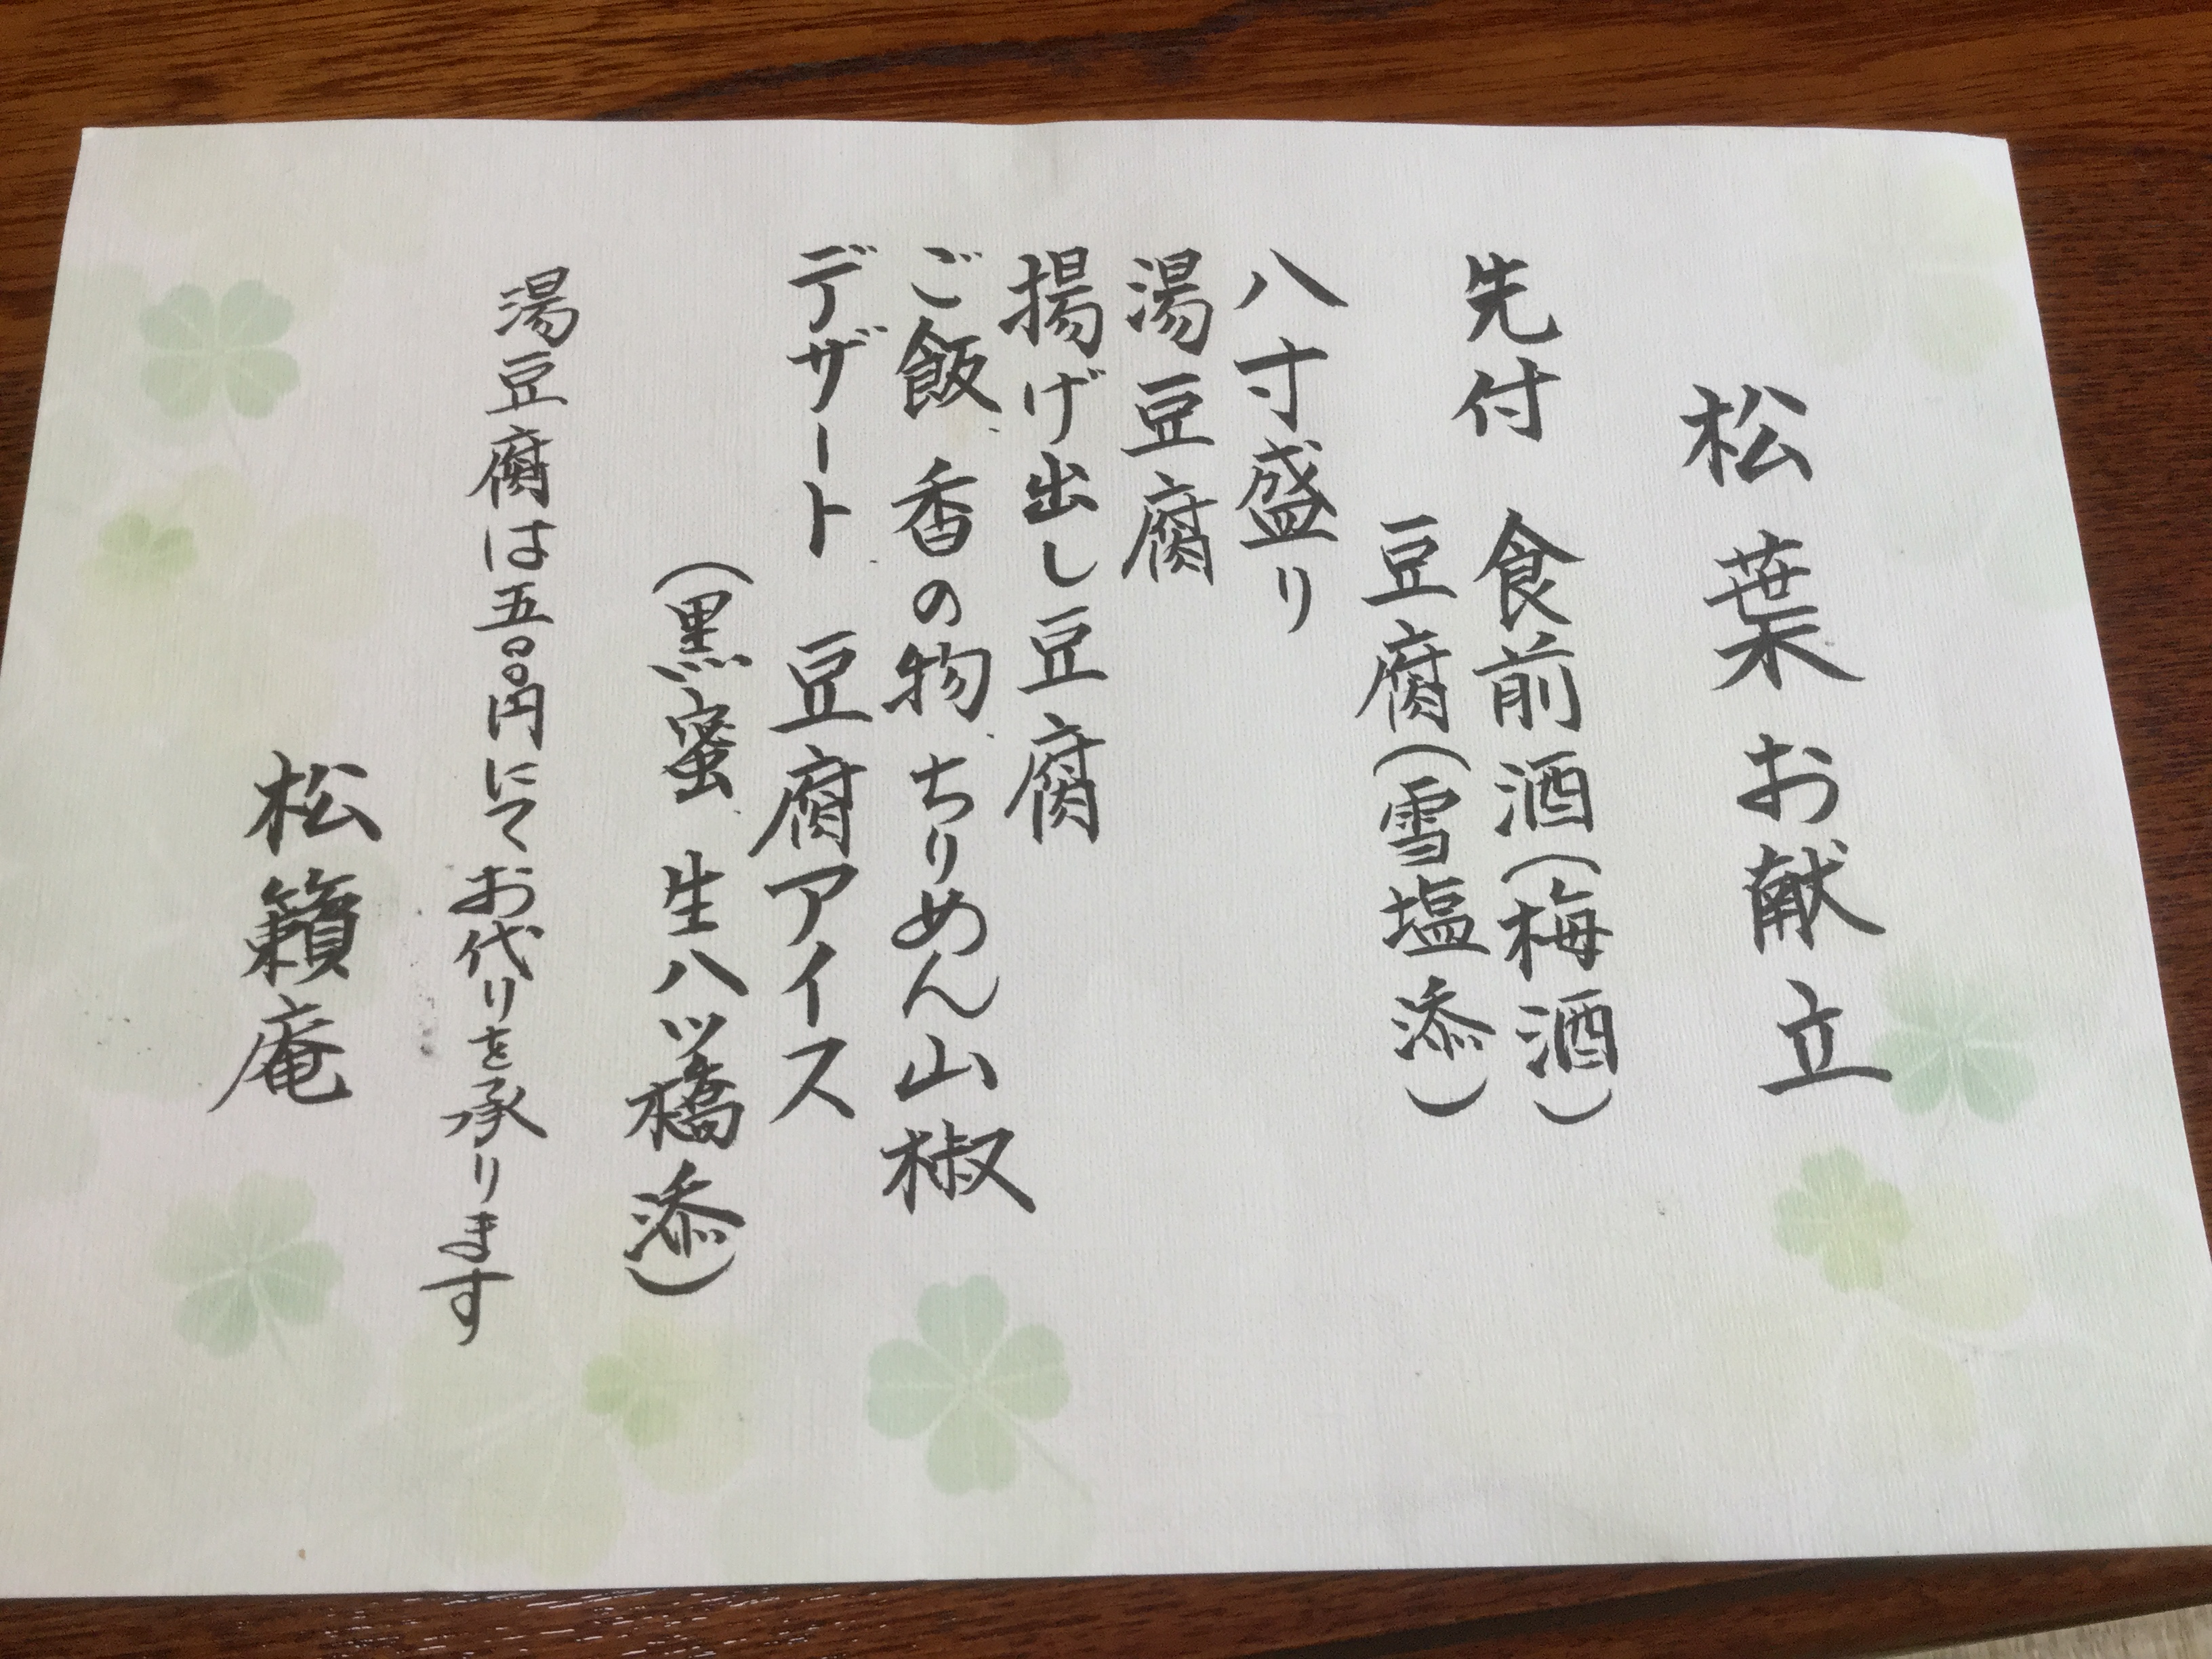 松葉お献立
先付 食前酒(梅酒)
豆腐(雪塩添)
八寸盛り
湯豆腐
揚げ出し豆腐
ご飯 香の物 ちりめん山椒
デザート 豆腐アイス
(黒蜜 生八ツ橋添)
湯豆腐は五〇〇円にてお代りを承ります
松籟庵